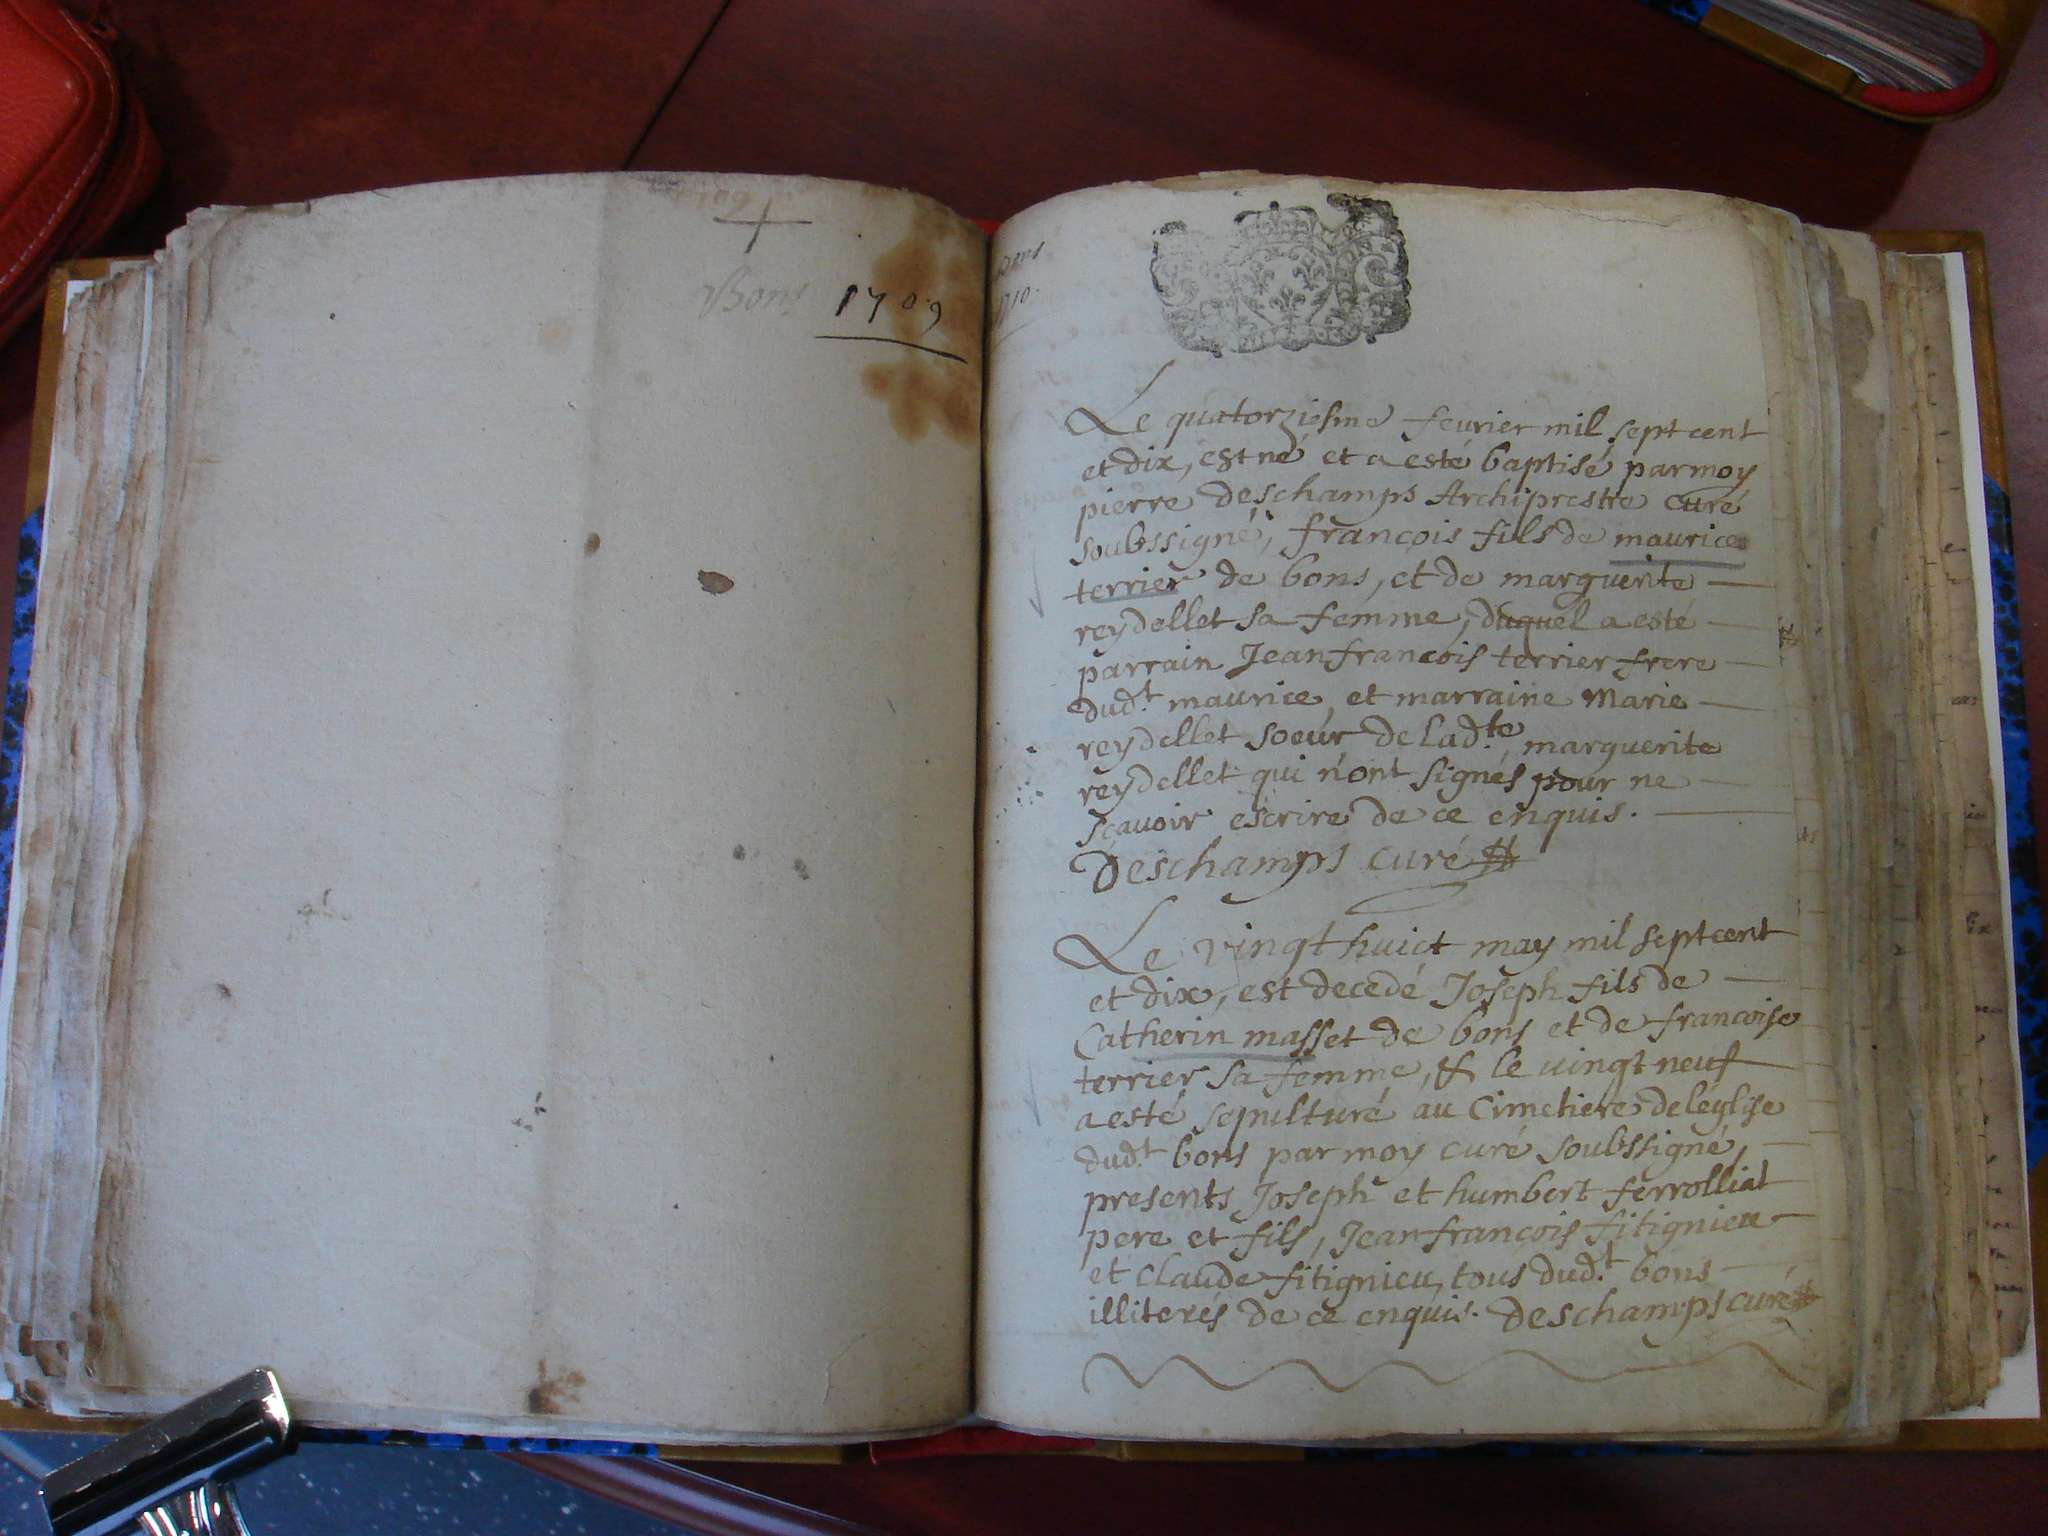 Bons 1709
Bons
1710.
Le quatorziesme feurier mil sept cent
et dix, est né et a esté baptisé par moy
pierre deschamps Archiprestre curé
soubssigné, francois fils de maurice
terrier de bons, et de marguerite
reydellet sa femme, duquel a esté
parrain Jean francois terrier frere
dud.t maurice, et marraine Marie
reydellet soeur de lad.te marguerite
reydellet qui n'ont signés pour ne
scavoir escrire de ce enquis.
Deschamps curé
Le vingt huict may mil sept cent
et dix, est decedé Joseph fils de
Catherin masset de bons et de francoise
terrier sa femme, & le vingt neuf
a esté sepulturé au Cimetiere de leglise
dud.t bons par moy curé soubssigné,
presents Joseph et humbert ferrolliat
pere et fils, Jean francois fitignieu
et Claude fitignieu, tous dud.t bons
illiterés de ce enquis. Deschamps curé